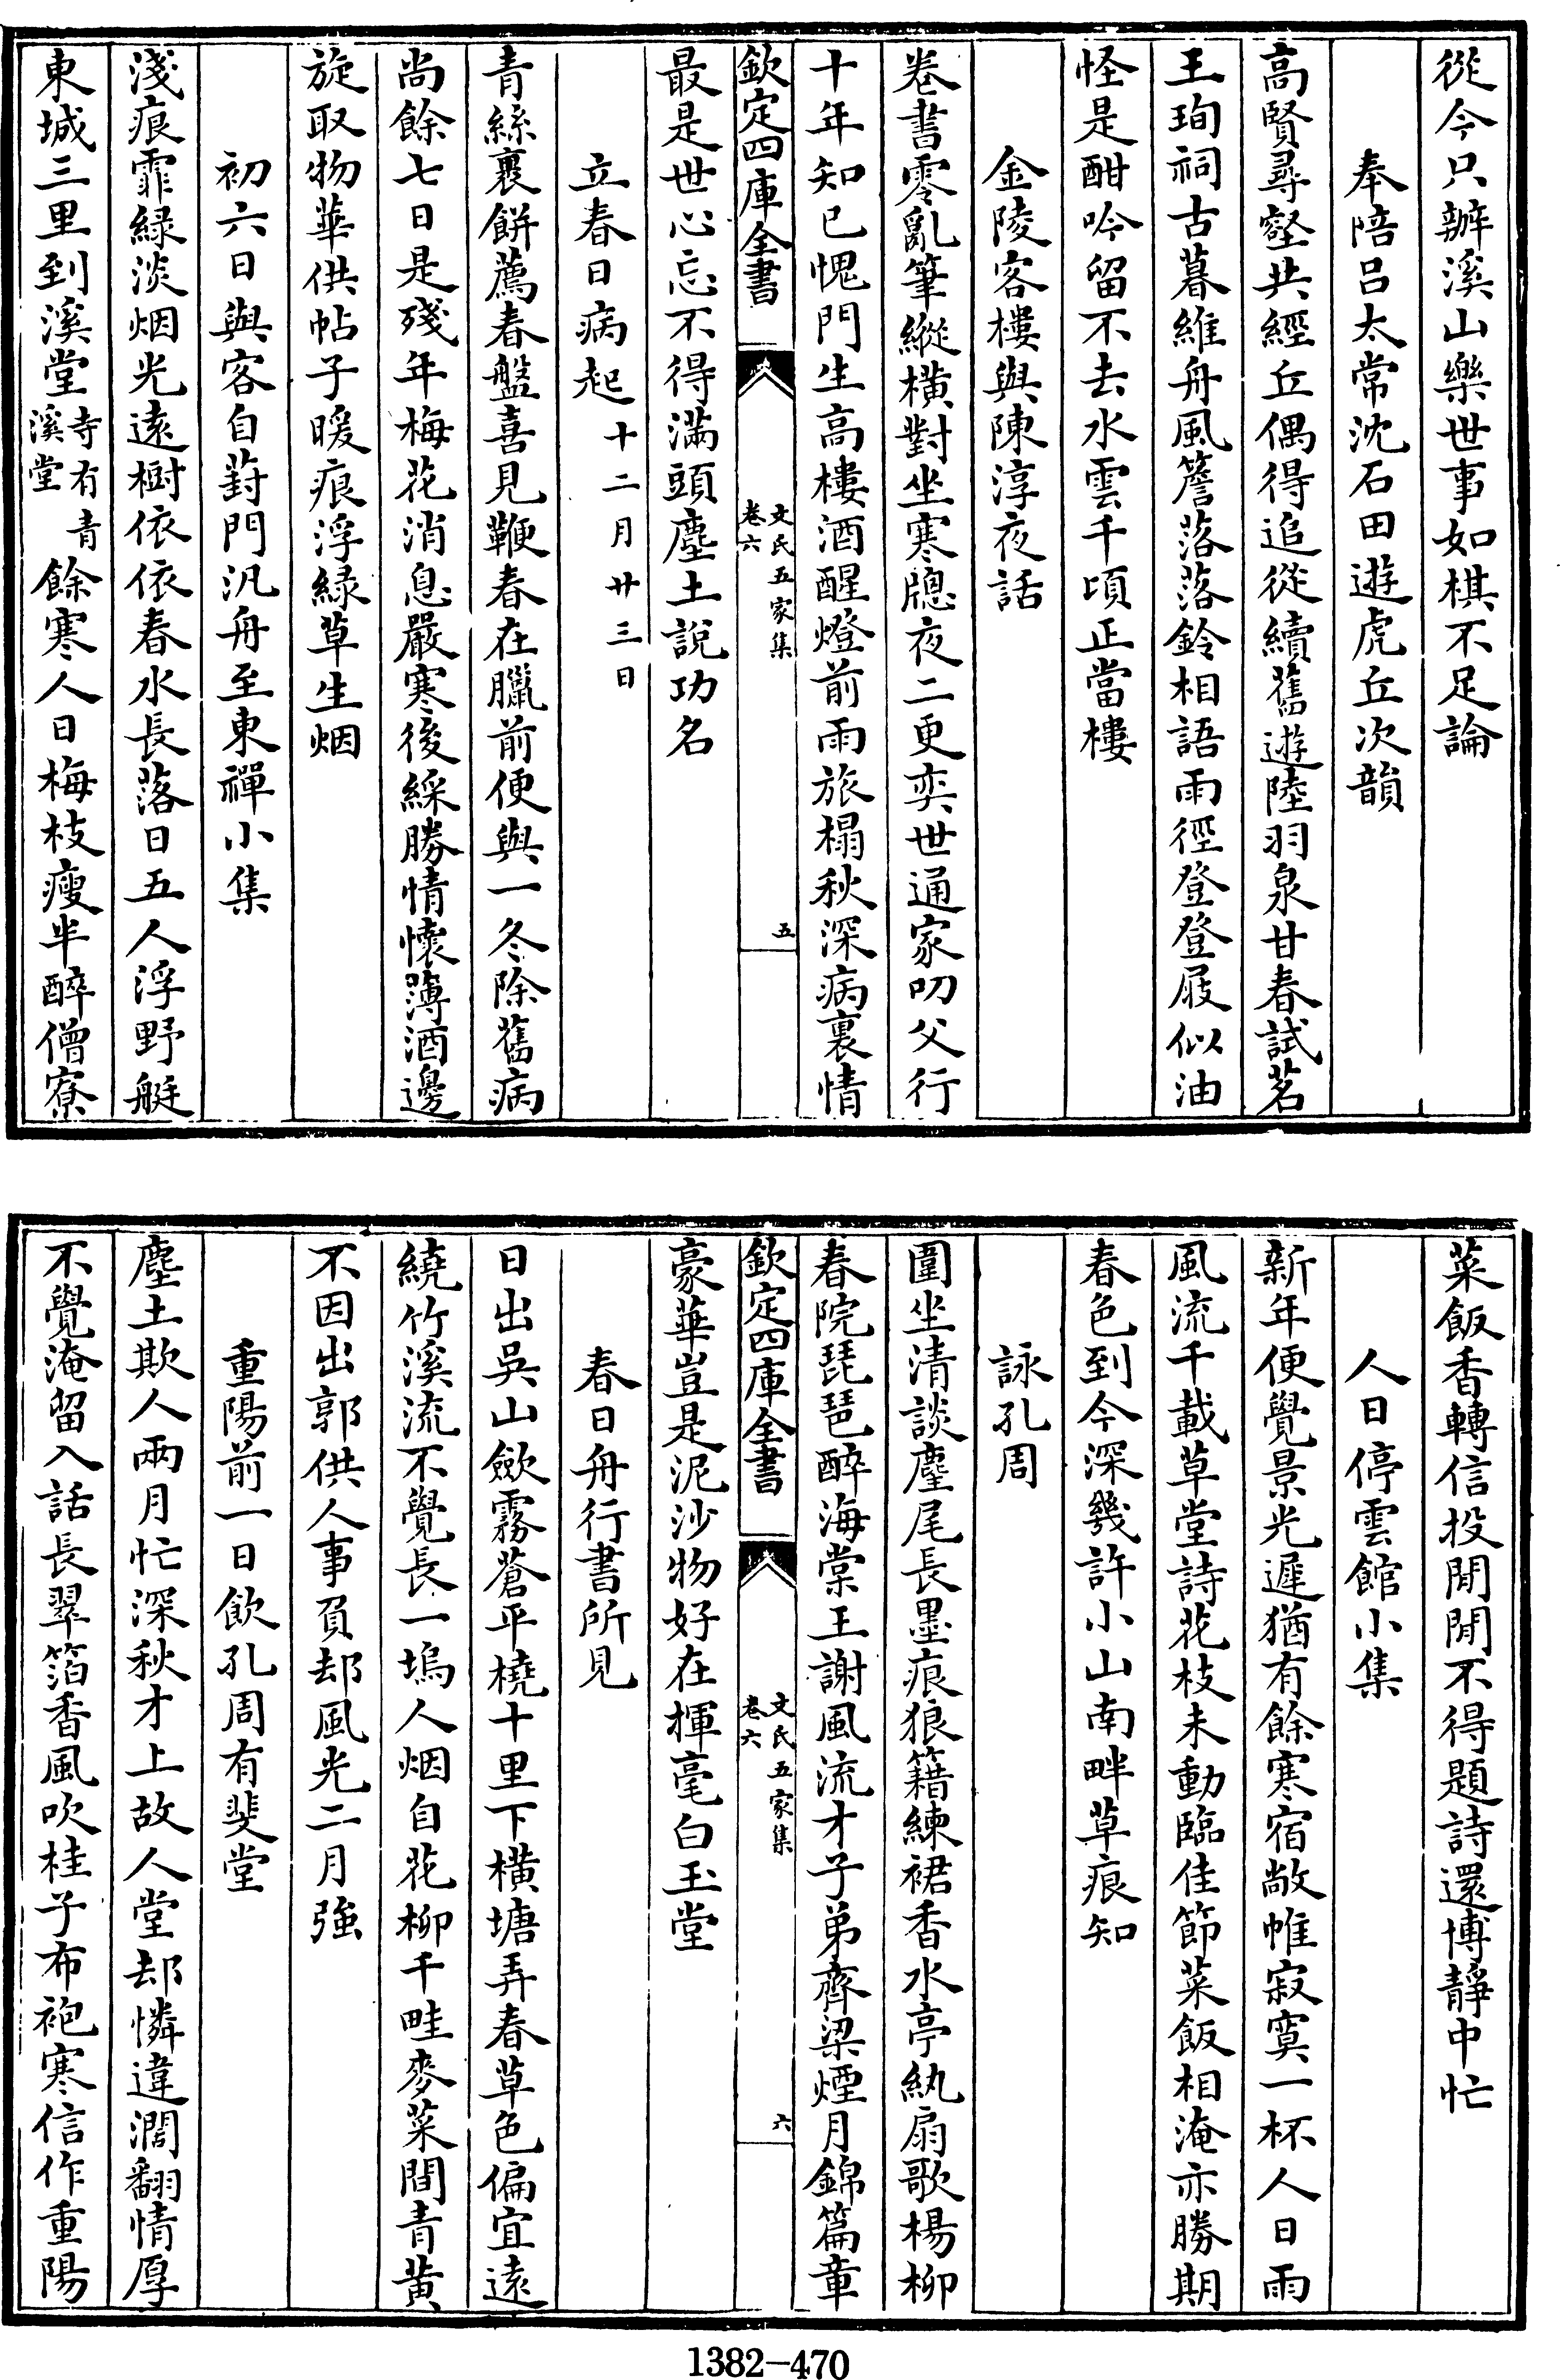 從今只辦溪山樂世事如棋不足論
奉陪吕太常沈石田遊虎丘次韻
高賢尋壑共經丘偶得追從續舊遊陸羽泉甘春試茗
王珣祠古暮維舟風簷落落鈴相語雨徑登登屐似油
怪是酣吟留不去水雲千頃正當樓
金陵客樓與陳淳夜話
卷書零亂筆縱横對坐寒牕夜二更奕世通家叨父行
十年知已愧門生高樓酒醒燈前雨旅榻秋深病裏情
欽定四庫全書
文氏五家集
卷六
五
最是世心忘不得滿頭塵土說功名
立春日病起十二月廿三日
青絲裹餅薦春盤喜見鞭春在臘前便與一冬除舊病
尚餘七日是殘年梅花消息嚴寒後綵勝情懷薄酒邊
旋取物華供帖子暖痕浮緑草生烟
初六日與客自葑門汎舟至東禪小集
淺痕霏緑淡烟光遠樹依依春水長落日五人浮野艇
東城三里到溪堂寺有青溪堂餘寒人日梅枝瘦半醉僧寮
菜飯香轉信投閒閒不得題詩還博靜中忙
人日停雲館小集
新年便覺景光遲猶有餘寒宿敝帷寂寞一杯人日雨
風流千載草堂詩花枝未動臨佳節菜飯相淹亦勝期
春色到今深幾許小山南畔草痕知
詠孔周
圍坐清談麈尾長墨痕狼籍練裙香水亭紈扇歌楊柳
春院琵琶醉海棠王謝風流才子弟齊梁煙月錦篇章
欽定四庫全書
文氏五家集
卷六
六
豪華豈是泥沙物好在揮毫白玉堂
春日舟行書所見
日出吳山歛霧蒼平橈十里下横塘弄春草色偏宜遠
繞竹溪流不覺長一塢人烟自花柳千畦麥菜間青黄
不因出郭供人事負却風光二月強
重陽前一日飲孔周有斐堂
塵土欺人兩月忙深秋才上故人堂却憐違濶翻情厚
不覺淹留入話長翠箔香風吹桂子布袍寒信作重陽
1382-470